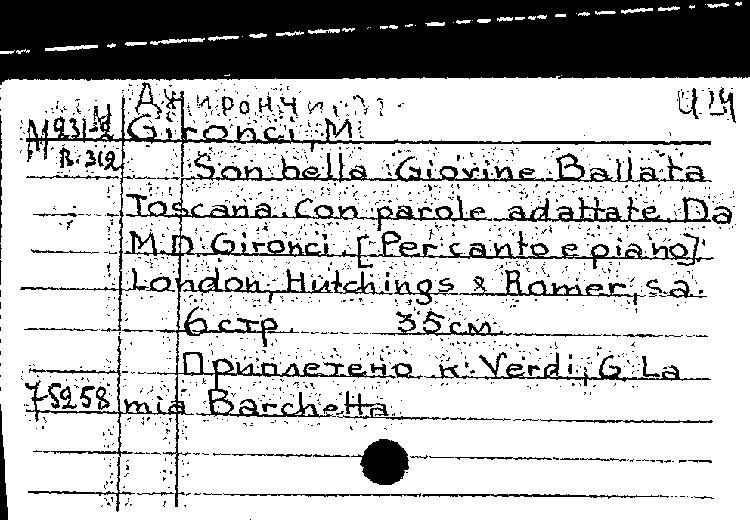 Джирончи, М.
М231-2 Gironci, M.
R.312 Son bella Giovine Ballata
Toscana. Con parole adattate Da
M.D. Gironci. [Per canto e piano]
London, Hutchings & Romer, s.a.
6 стр. 35 см.
Приплетено к: Verdi, G. La
75258 mia Barchetta.